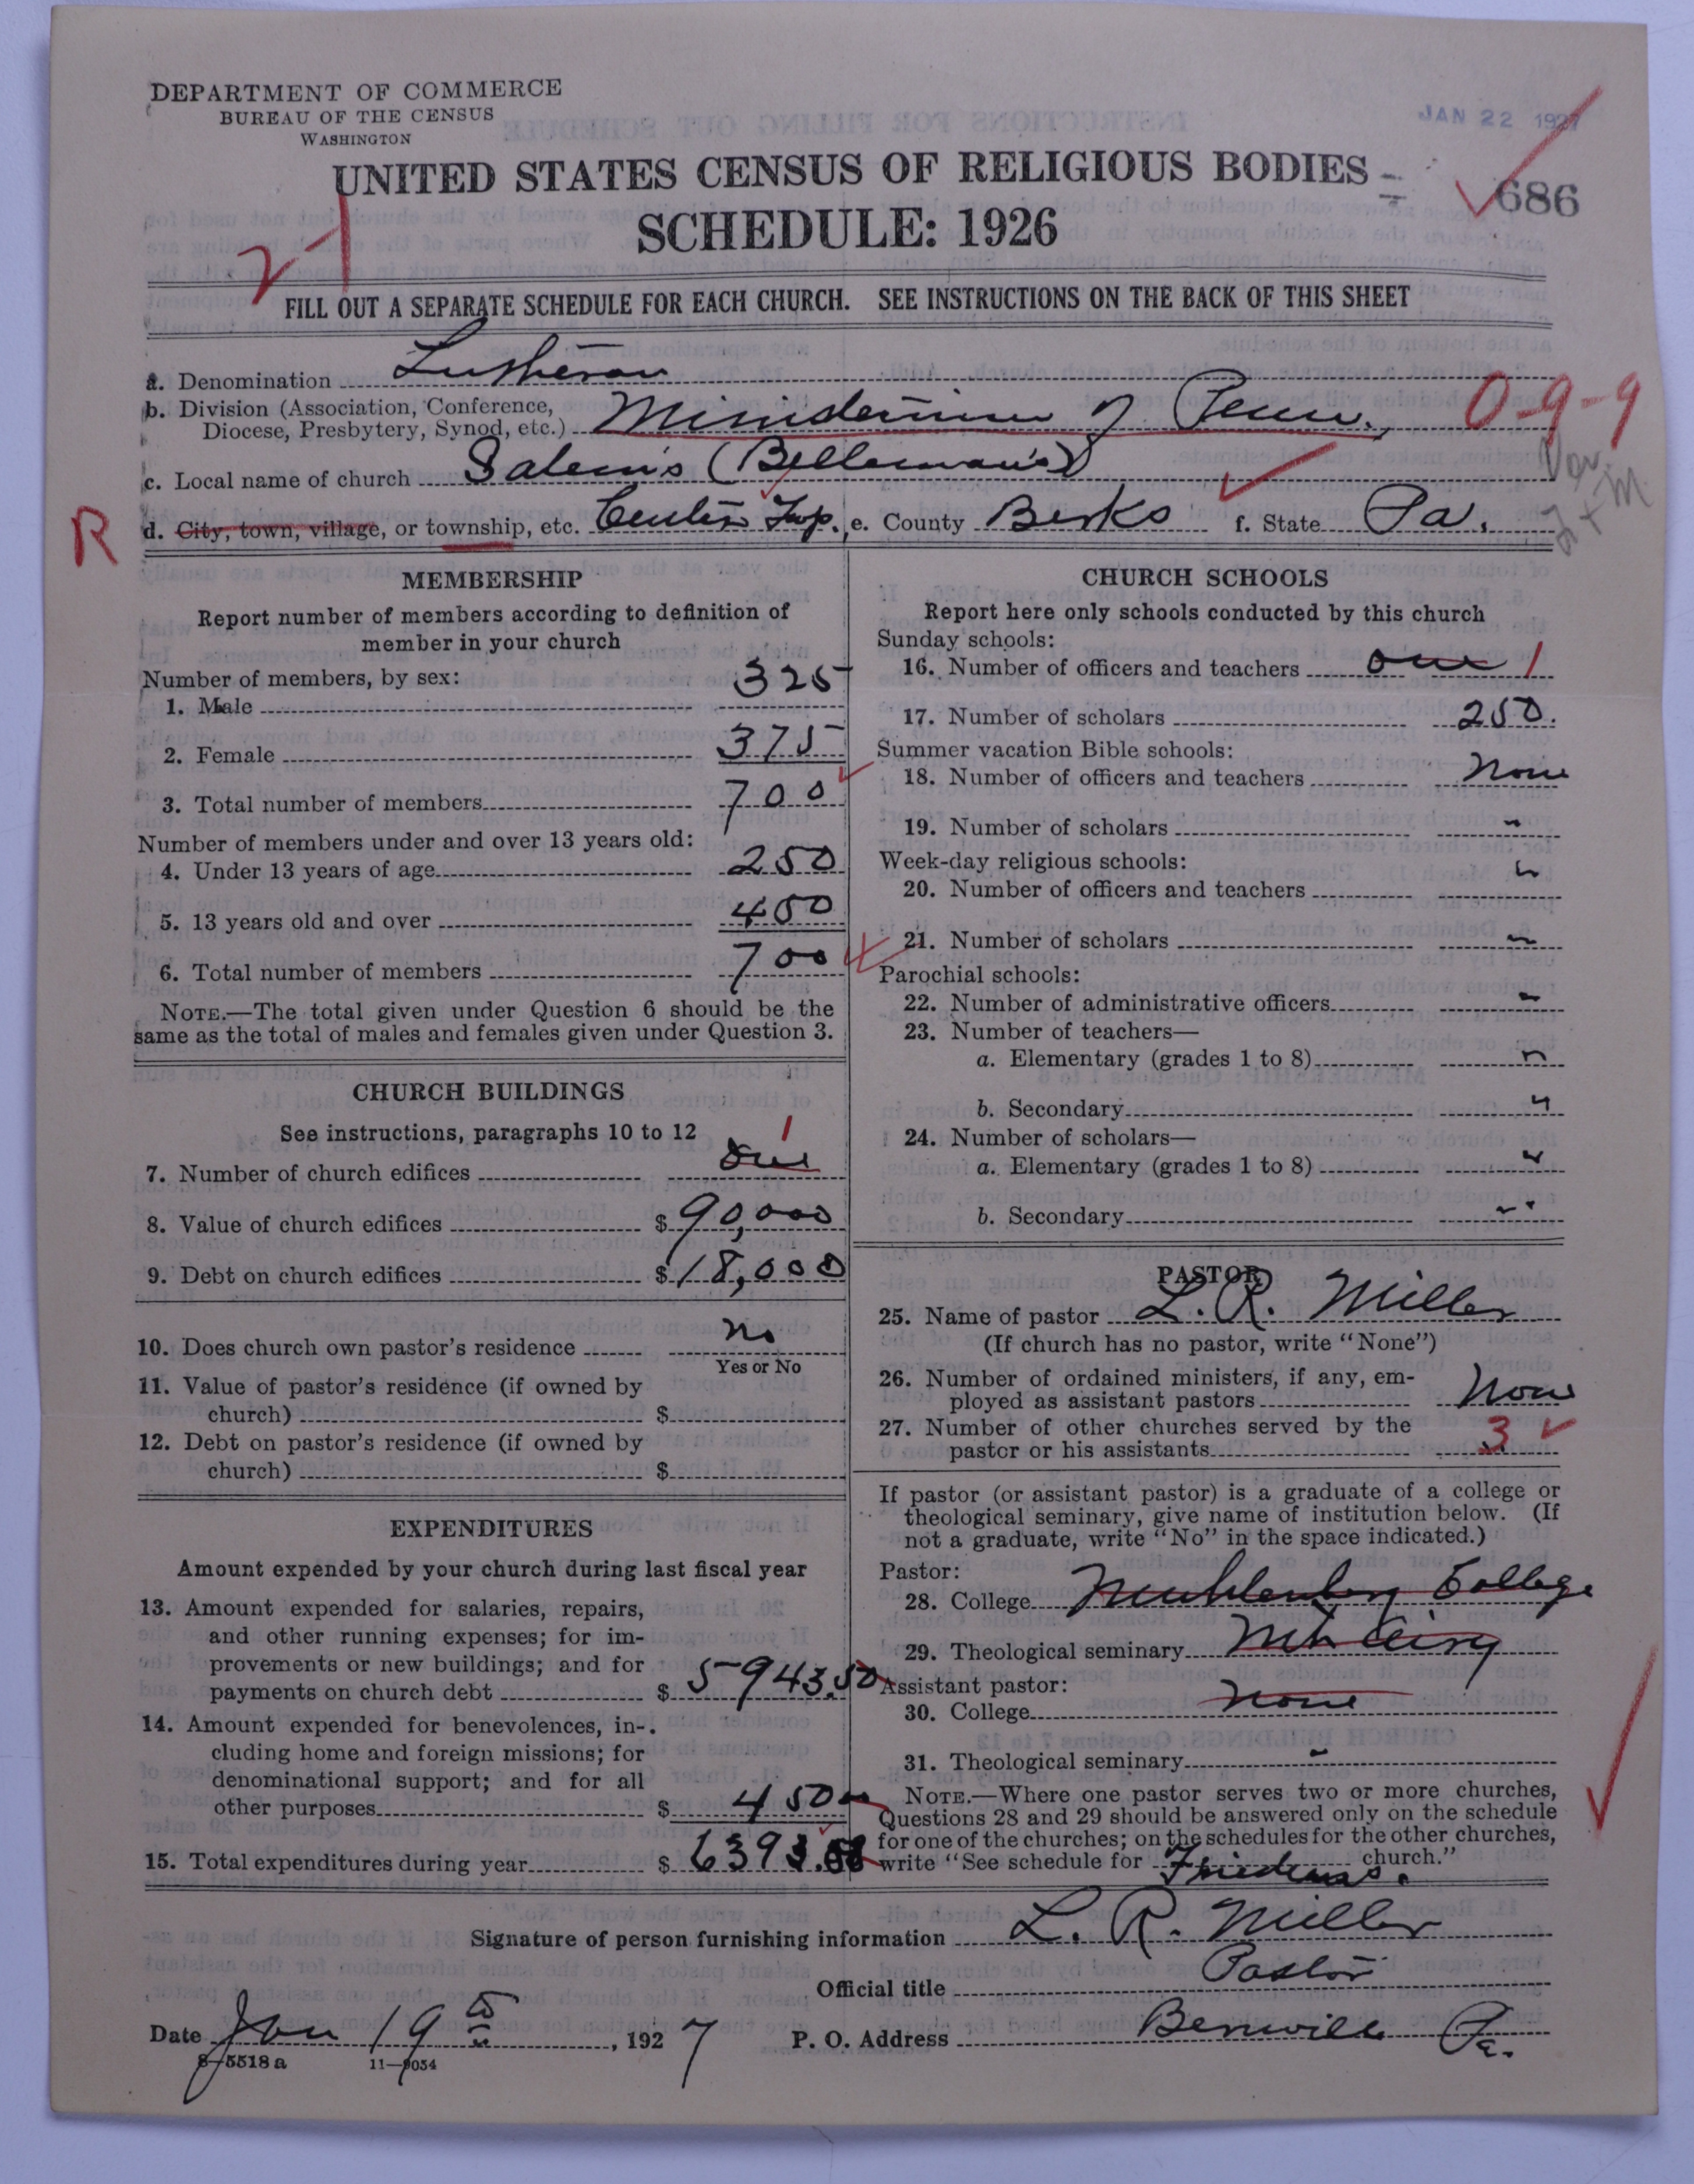 DEPARTMENT OF COMMERCE
BUREAU OF THE CENSUS
WASHINGTON
JAN 22 1927
UNITED STATES CENSUS OF RELIGIOUS BODIES
686
SCHEDULE: 1926
FILL OUT A SEPARATE SCHEDULE FOR EACH CHURCH. SEE INSTRUCTIONS ON THE BACK OF THIS SHEET
a. Denomination Lutheran
b. Division (Association, Conference, Diocese, Presbytery, Synod, etc.) Ministerium of Penn., 0-9-9
c. Local name of church Salem's (Belleman's)
R d. City, town, village, or township, etc. Centre Twp. e. County Berks f. State Pa.
MEMBERSHIP
Report number of members according to definition of
member in your church
Number of members, by sex:
1. Male 325
2. Female 375
3. Total number of members 700
Number of members under and over 13 years old:
4. Under 13 years of age 250
5. 13 years old and over 450
6. Total number of members 700
NOTE.—The total given under Question 6 should be the
same as the total of males and females given under Question 3.
CHURCH BUILDINGS
See instructions, paragraphs 10 to 12
7. Number of church edifices one 1
8. Value of church edifices $ 90,000
9. Debt on church edifices $ 18,000
10. Does church own pastor's residence no
Yes or No
11. Value of pastor's residence (if owned by
church) $
12. Debt on pastor's residence (if owned by
church) $
EXPENDITURES
Amount expended by your church during last fiscal year
13. Amount expended for salaries, repairs,
and other running expenses; for im-
provements or new buildings; and for
payments on church debt $ 5943.50
14. Amount expended for benevolences, in-
cluding home and foreign missions; for
denominational support; and for all
other purposes $ 450
15. Total expenditures during year $ 6393.50
CHURCH SCHOOLS
Report here only schools conducted by this church
Sunday schools:
16. Number of officers and teachers one 1
17. Number of scholars 250.
Summer vacation Bible schools:
18. Number of officers and teachers None
19. Number of scholars "
Week-day religious schools:
20. Number of officers and teachers "
21. Number of scholars "
Parochial schools:
22. Number of administrative officers "
23. Number of teachers—
a. Elementary (grades 1 to 8) "
b. Secondary "
24. Number of scholars—
a. Elementary (grades 1 to 8) "
b. Secondary "
PASTOR
25. Name of pastor L. R. Miller
(If church has no pastor, write "None")
26. Number of ordained ministers, if any, em-
ployed as assistant pastors None
27. Number of other churches served by the
pastor or his assistants 3
If pastor (or assistant pastor) is a graduate of a college or
theological seminary, give name of institution below. (If
not a graduate, write "No" in the space indicated.)
Pastor:
28. College Muhlenberg College
29. Theological seminary Mt. Airy
Assistant pastor:
30. College None
31. Theological seminary "
NOTE.—Where one pastor serves two or more churches,
Questions 28 and 29 should be answered only on the schedule
for one of the churches; on the schedules for the other churches,
write "See schedule for Friedens. church."
Signature of person furnishing information L. R. Miller
Official title Pastor
Date Jan 19th, 1927 P. O. Address Bernville Pa.
8-5518 a 11-9054